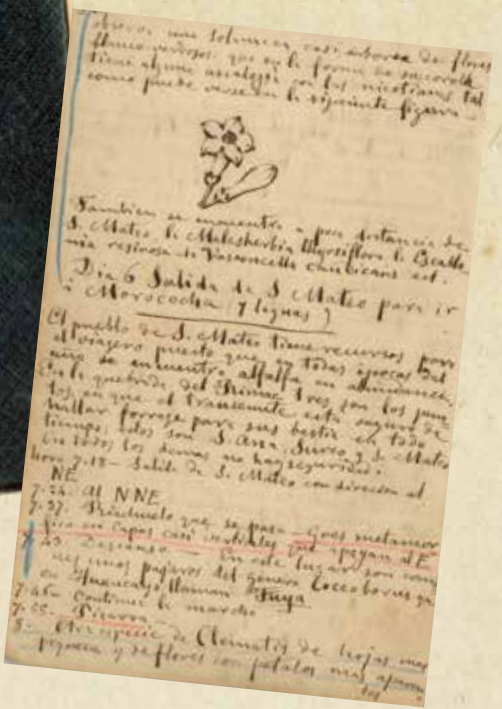 observé una Solanacea casi arborea de flores
blanco verdosas, que en la forma de su corola
tiene alguna analogia con las nicotianas tal
como puede verse en la siguiente figura
Tambien se encuentra a poca distancia de
S. Mateo la Malesherbia thyrsiflora la Escallo
nia resinosa la Vasconcella candicans ect.
Dia 6 Salida de S. Mateo para ir
a Morococha (7 leguas)
El pueblo de S. Mateo tiene recursos para
el viajero puesto que en todas epocas del
año se encuentra alfalfa en abundancia.
En la quebrada del Rimac tres son los pun
tos en que el transeunte está seguro de
hallar forraje para sus bestias en todo
tiempo, estos son S. Ana, Surco y S. Mateo
En todos los demas no hay seguridad.
hora 7.18 - Salida de S. Mateo con direccion al
NE
7.24. Al NNE
7.37. Riachuelo que se pasa - Gres metamor
fico en capas casi verticales que apoyan al E
7.43. Descanso. - En este lugar son comu
nes unos pajaros del género Coccoborus que
en Huancayo llaman Tuya
7.46 - Continua la marcha
7.55. Pizarra.
8. - Otra especie de Clematis de hojas mas
pequeña y de flores con petalos mas aparen
tes